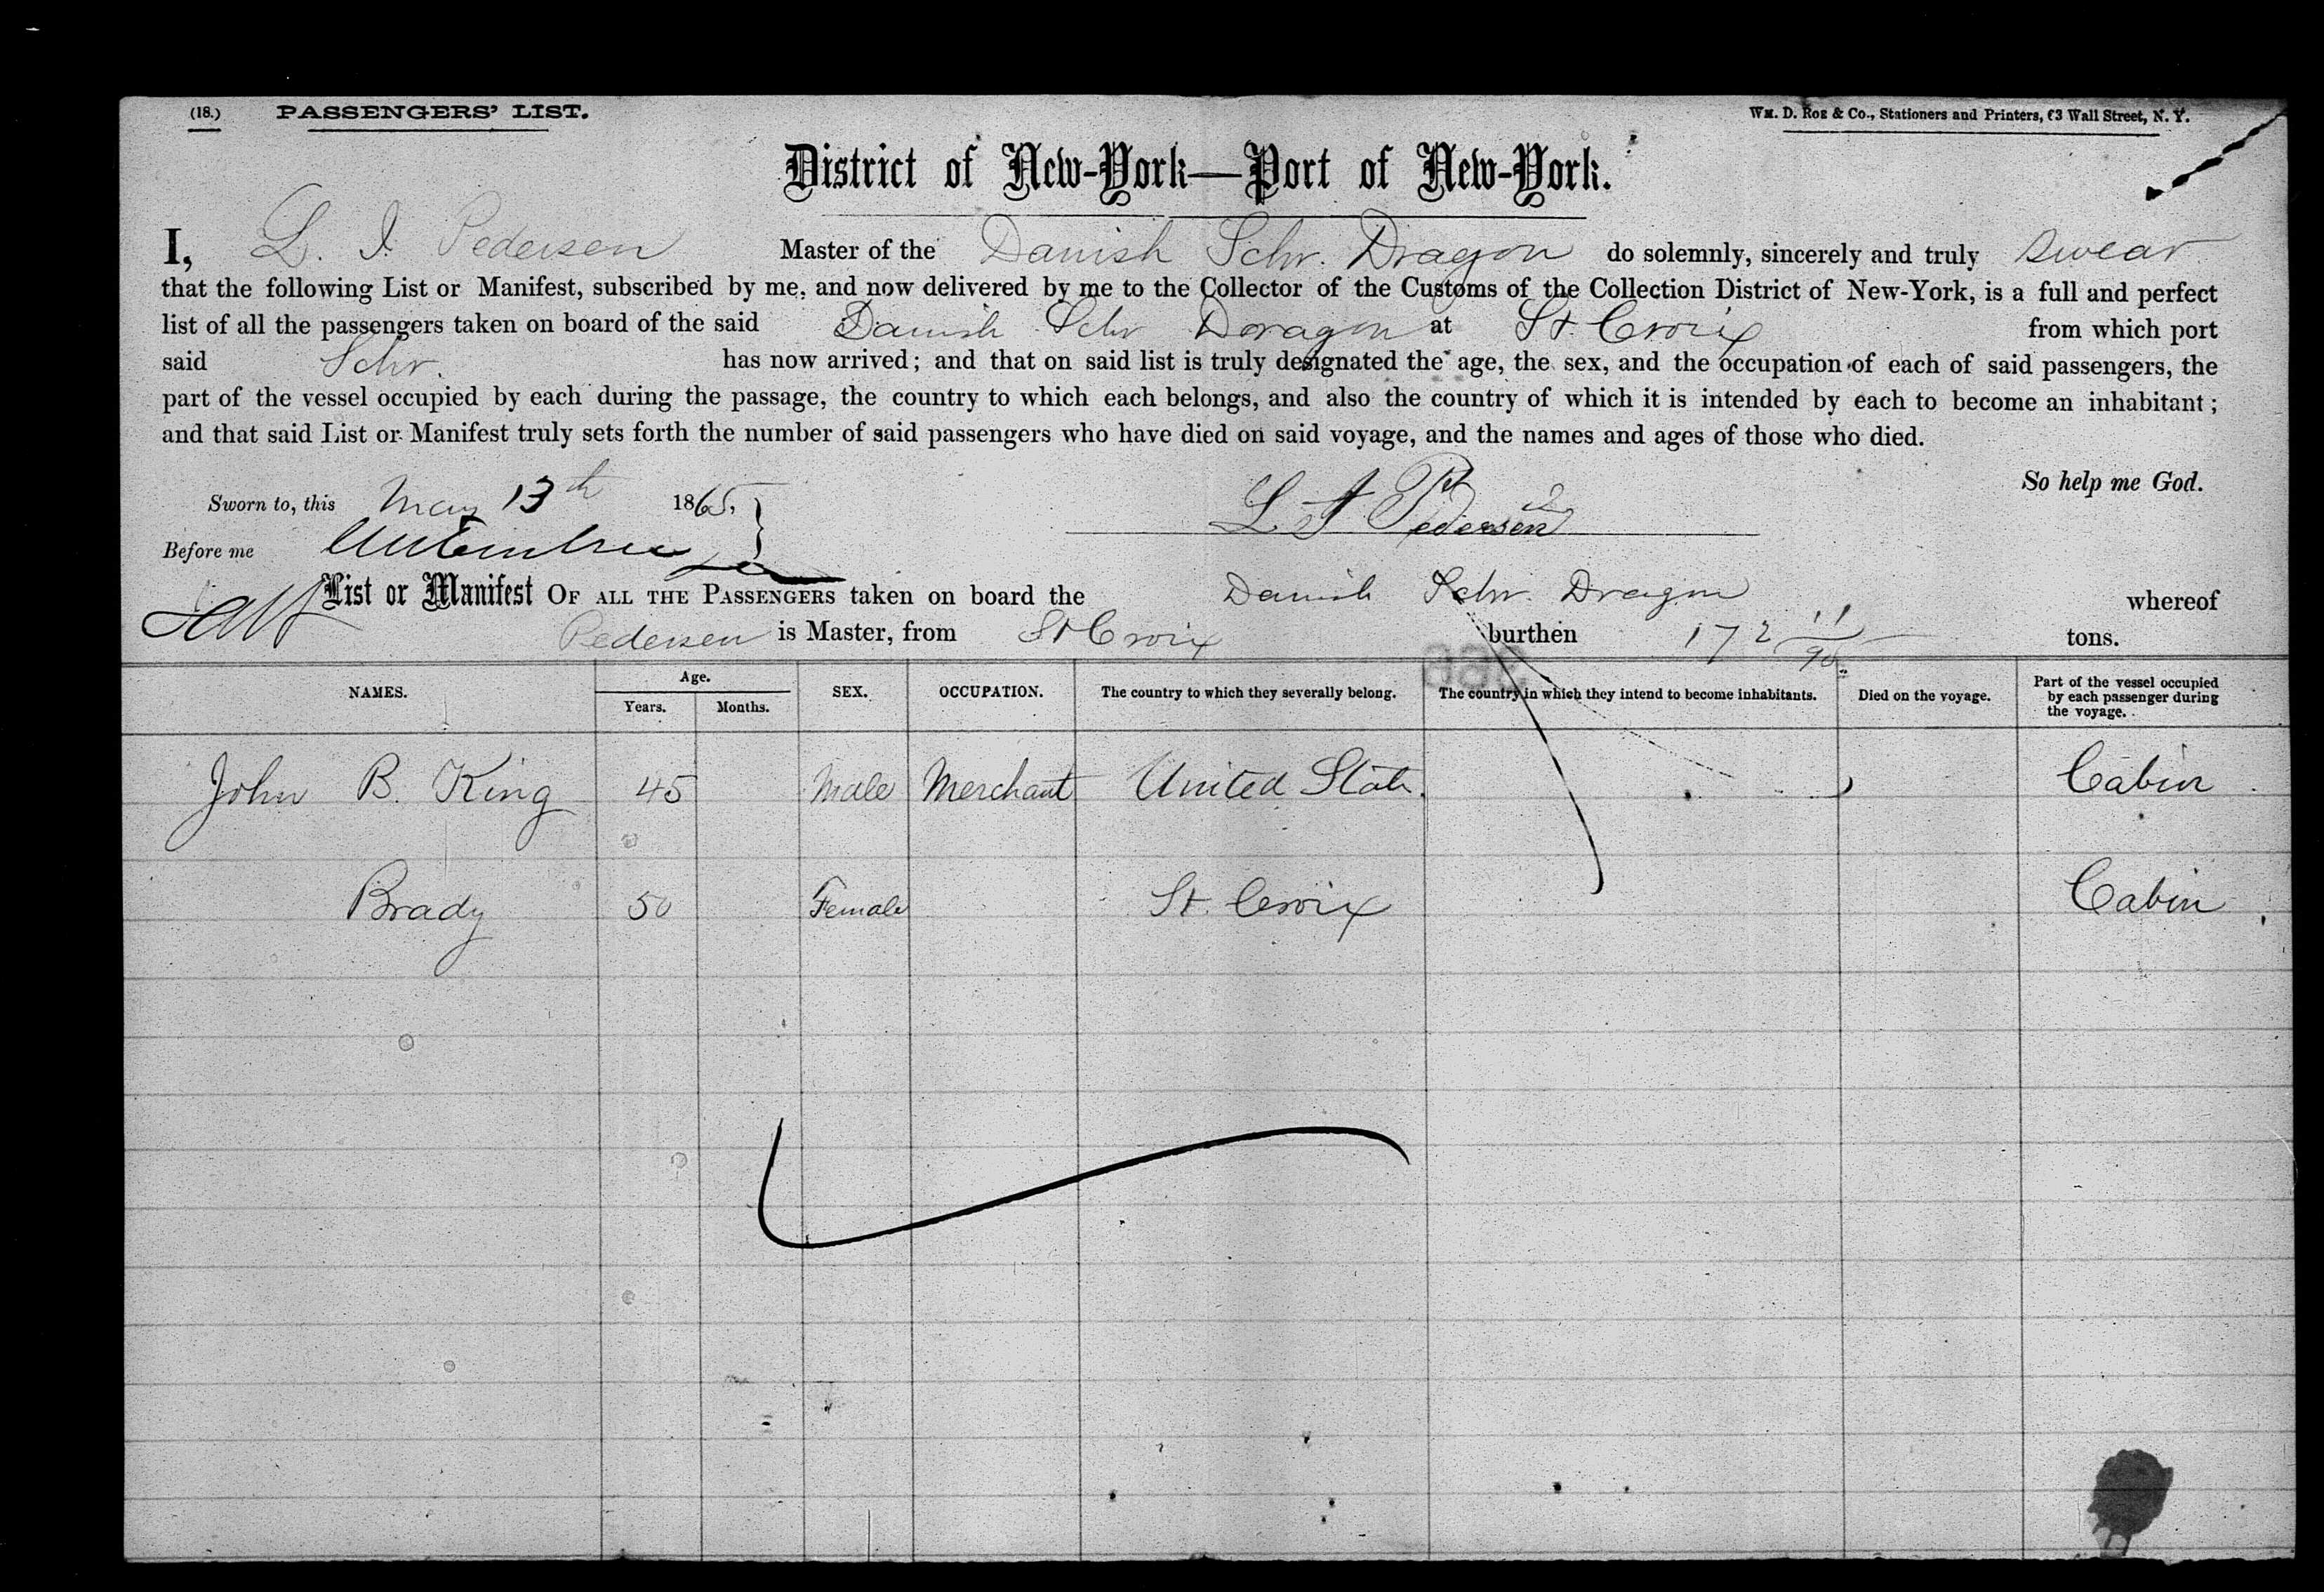 (18.) PASSENGERS' LIST. Wm. D. Roe & Co., Stationers and Printers, 63 Wall Street, N. Y.
District of New-York—Port of New-York.
I, L. I. Pedersen Master of the Danish Schr. Dragon do solemnly, sincerely and truly swear
that the following List or Manifest, subscribed by me, and now delivered by me to the Collector of the Customs of the Collection District of New-York, is a full and perfect
list of all the passengers taken on board of the said Danish Schr Doragon at St. Croix from which port
said Schr. has now arrived; and that on said list is truly designated the age, the sex, and the occupation of each of said passengers, the
part of the vessel occupied by each during the passage, the country to which each belongs, and also the country of which it is intended by each to become an inhabitant;
and that said List or Manifest truly sets forth the number of said passengers who have died on said voyage, and the names and ages of those who died.
So help me God.
Sworn to, this May 13th 1865, L Pedersen
Before me
List or Manifest OF ALL THE PASSENGERS taken on board the Danish Schr. Dragon whereof
Pedersen is Master, from St Croix burthen 172 11/95 tons.
NAMES. Age. SEX. OCCUPATION. The country to which they severally belong. The country in which they intend to become inhabitants. Died on the voyage. Part of the vessel occupied by each passenger during the voyage.
Years. Months.
John B. King 45 Male Merchant United State. Cabin
Brady 50 Female St. Croix Cabin